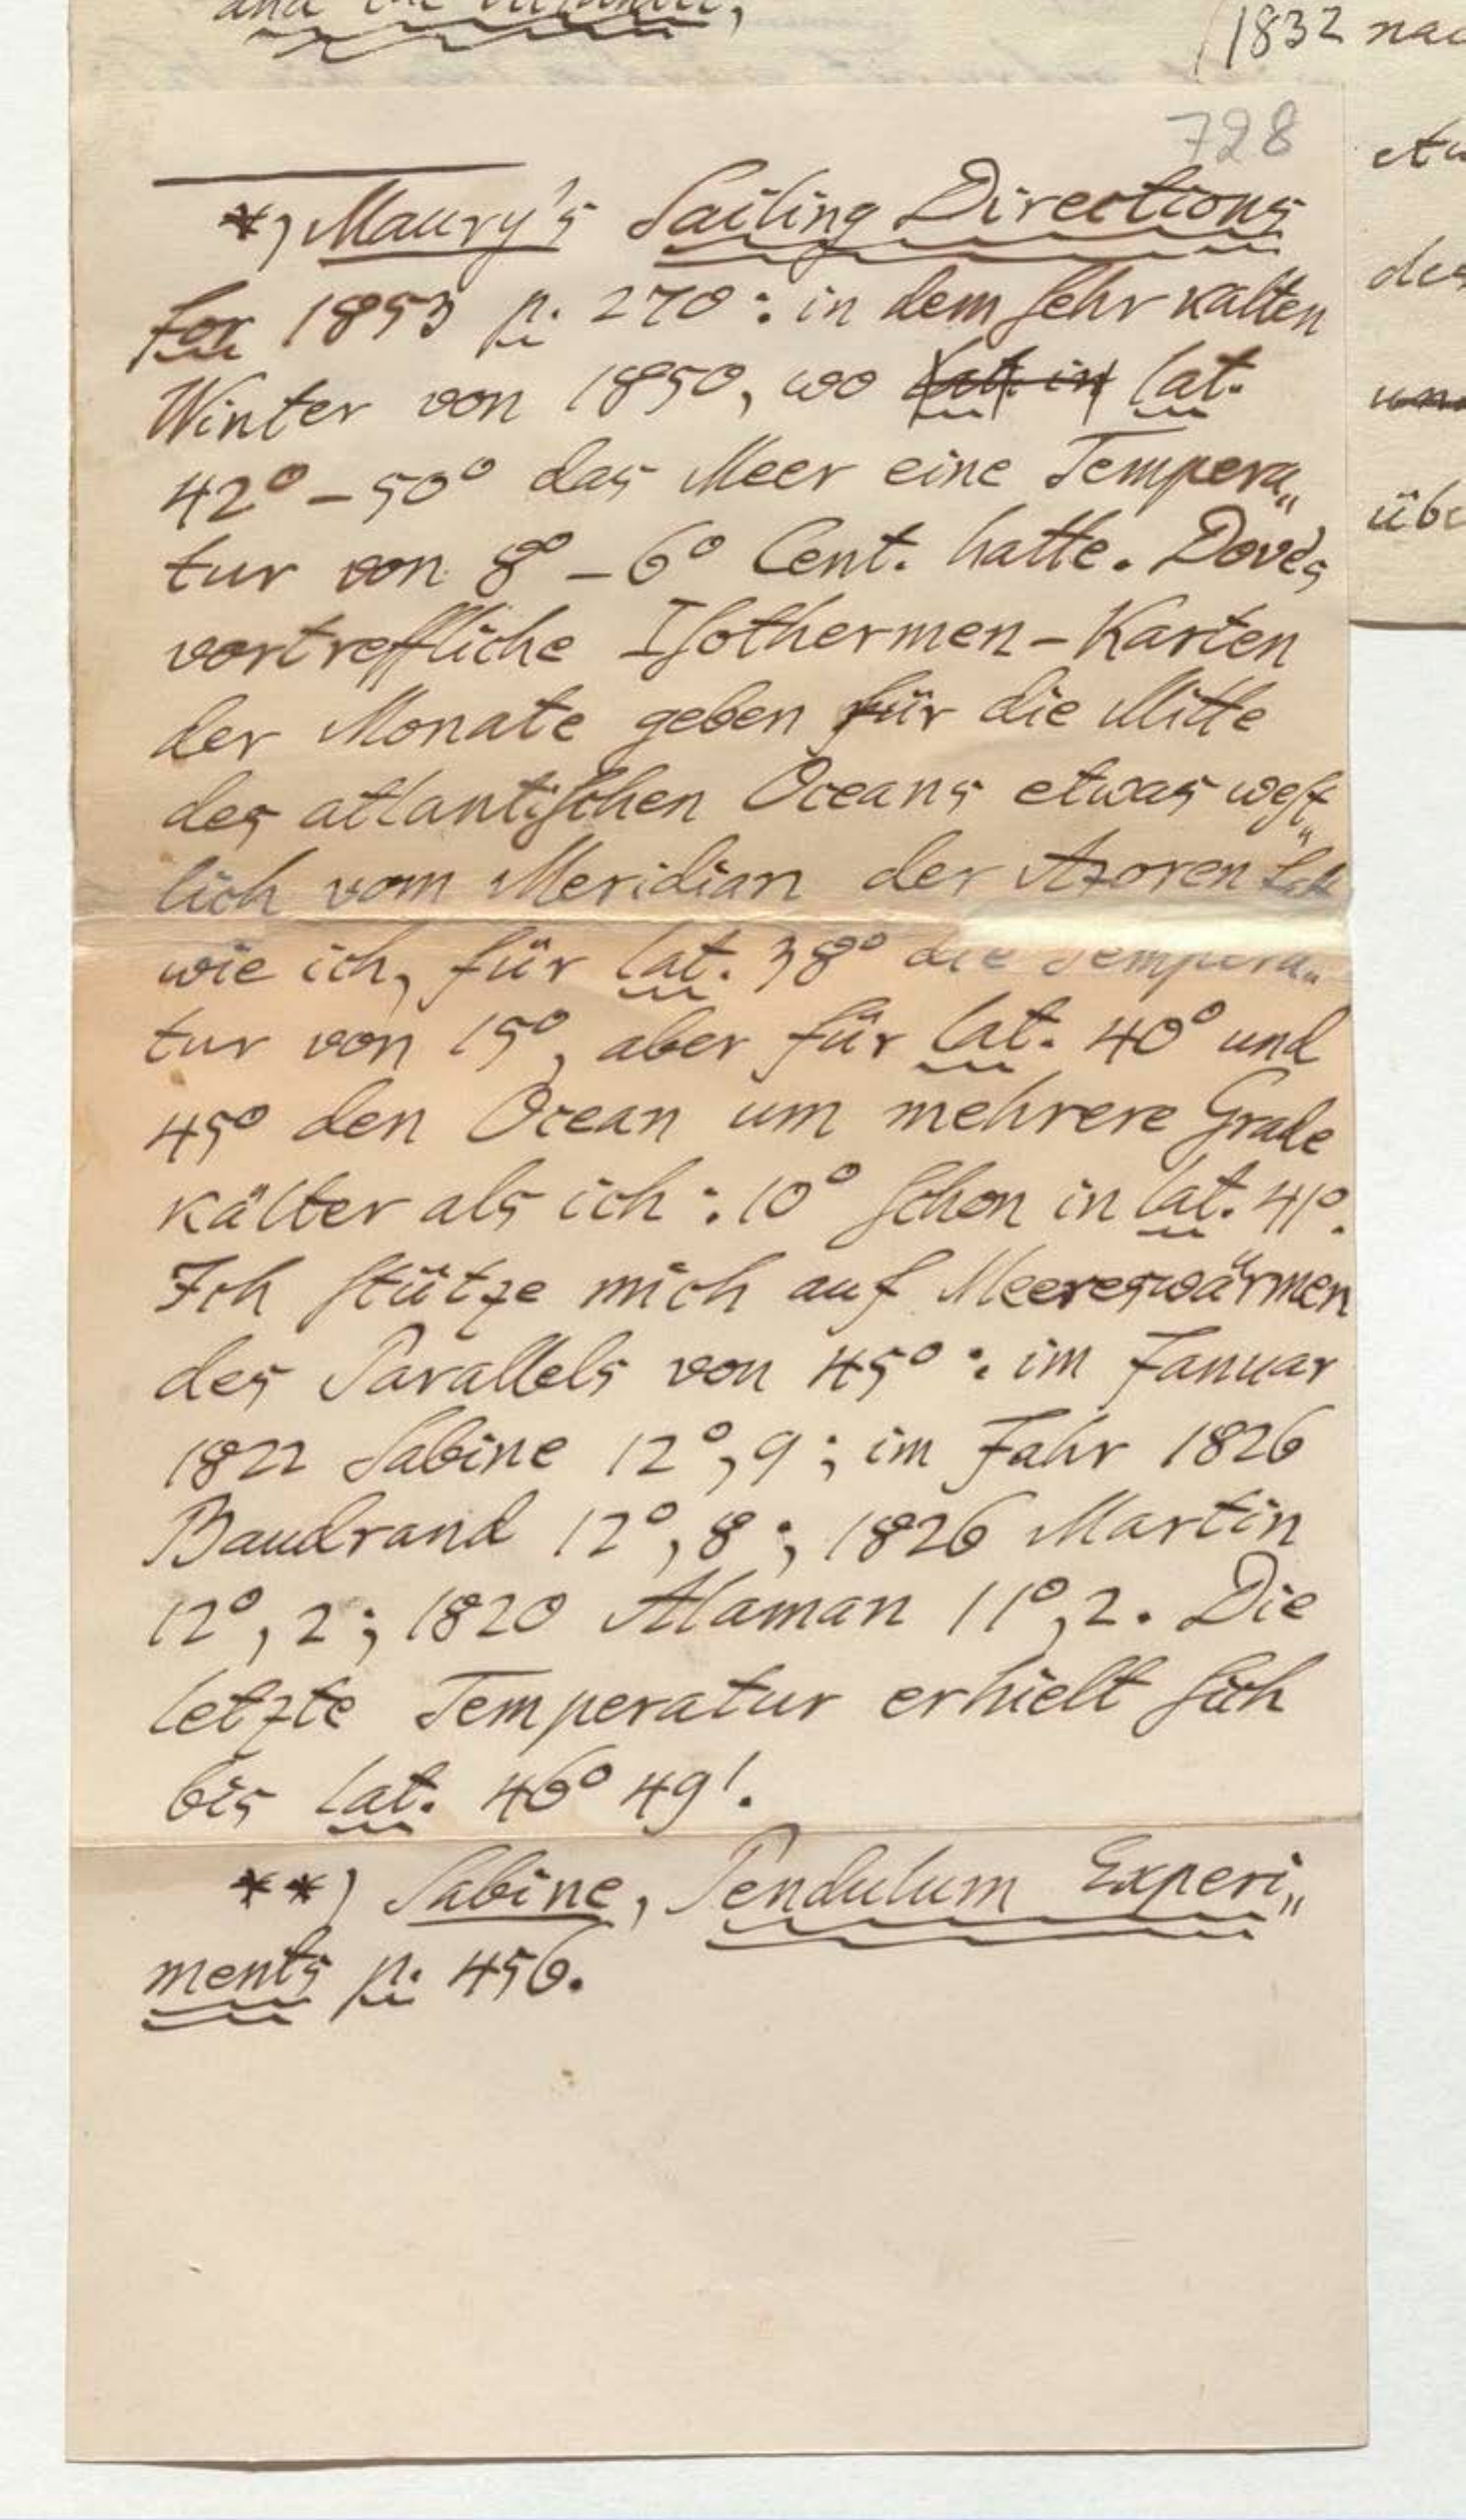 1832
728
*) Maury's Sailing Directions
for 1853 p. 270: in dem sehr kalten
Winter von 1850, wo lat. in lat.
42° – 50° das Meer eine Tempera„
tur von 8° – 6° Cent. hatte. Dove's
vortreffliche Isothermen-Karten
der Monate geben für die Mitte
des atlantischen Oceans etwas west„
lich vom Meridian der Azoren
wie ich, für lat. 38° die Tempera„
tur von 15°, aber für lat. 40° und
45° den Ocean um mehrere Grade
kälter als ich: 10° schon in lat. 41°.
Ich stütze mich auf Meereswärmen
des Parallels von 45°: im Januar
1822 Sabine 12°,9; im Jahr 1826
Baudrand 12°,8; 1826 Martin
12°,2; 1820 Alaman 11°,2. Die
letzte Temperatur erhielt sich
bis lat. 46° 49'.
**) Sabine, Pendulum Experi„
ments p. 456.